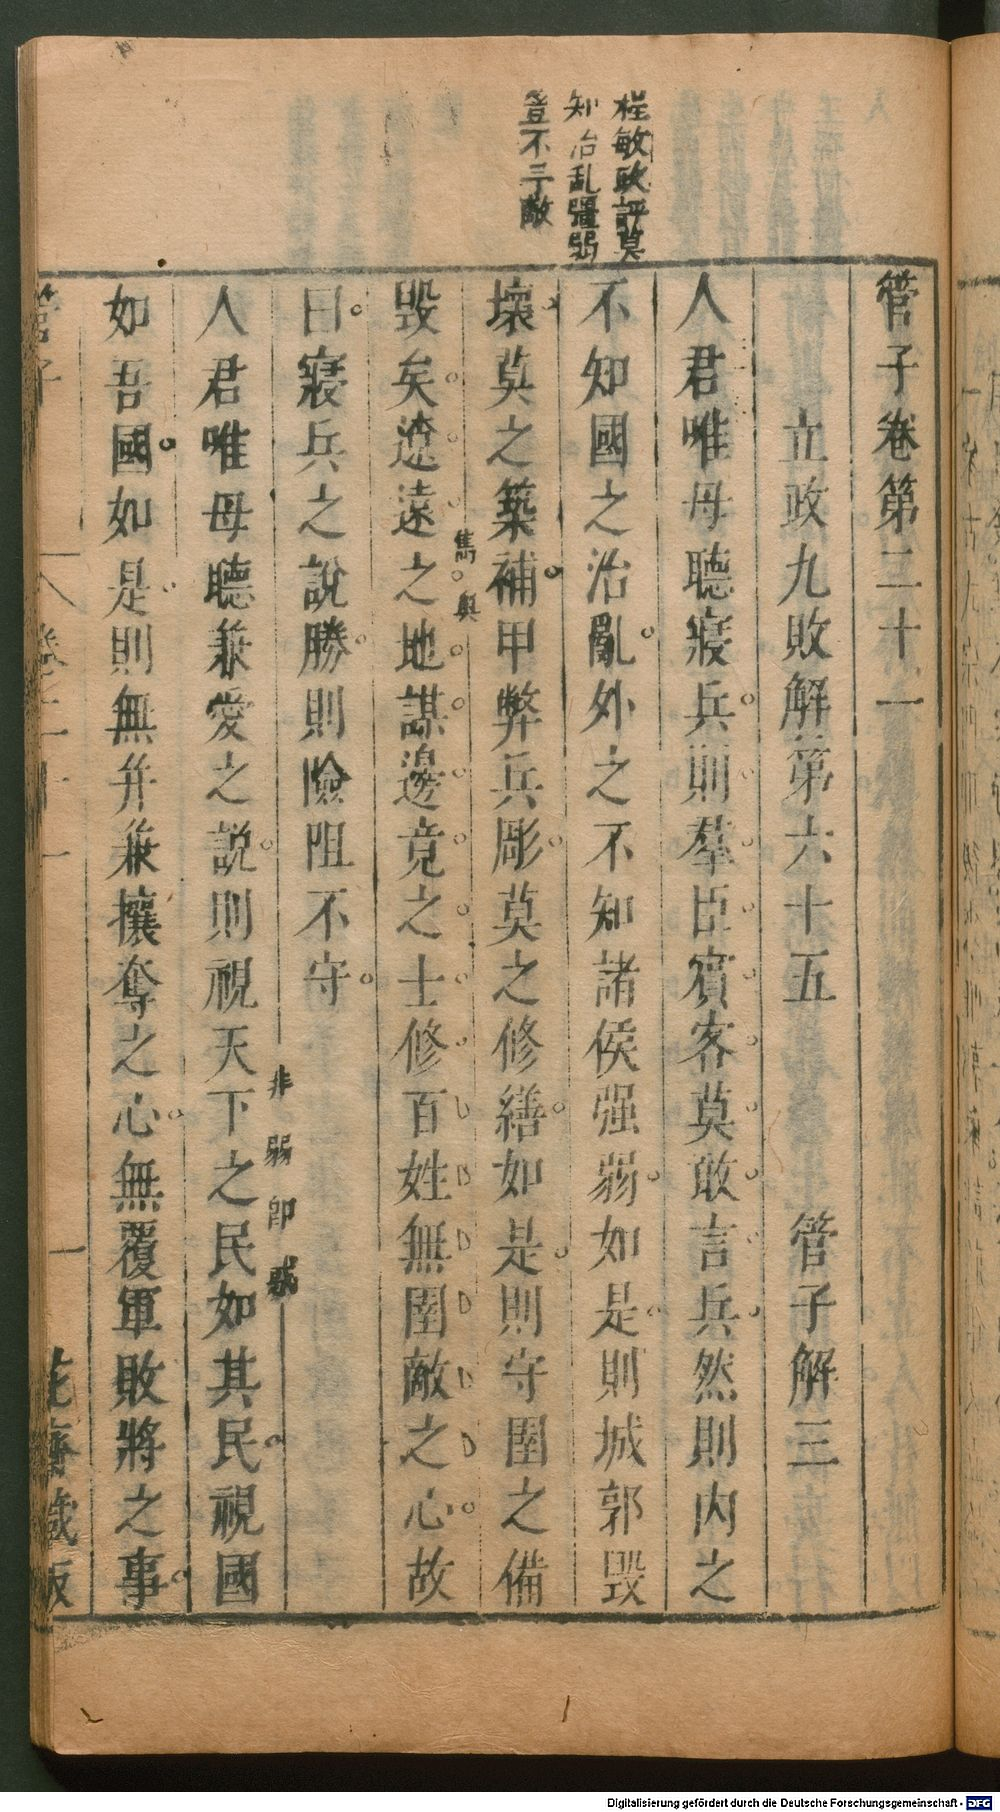 程敏政評莫
知治乱彊弱
豈不示敵
管子卷第二十一
立政九敗解第六十五 管子解三
人君唯毋聽寢兵則羣臣賓客莫敢言兵然則内之
不知國之治亂外之不知諸侯强弱如是則城郭毁
壞莫之築補甲弊兵彫莫之修繕如是則守圉之備
毁矣遼遠之地謀邊竟之士修百姓無圉敵之心故
曰寢兵之說勝則險阻不守
人君唯毋聽兼愛之說則視天下之民如其民視國
如吾國如是則無并兼攘奪之心無覆軍敗將之事
雋 與
非 弱 即 惑
管子
卷二十一
一
花齋藏板
Digitalisierung gefördert durch die Deutsche Forschungsgemeinschaft - DFG